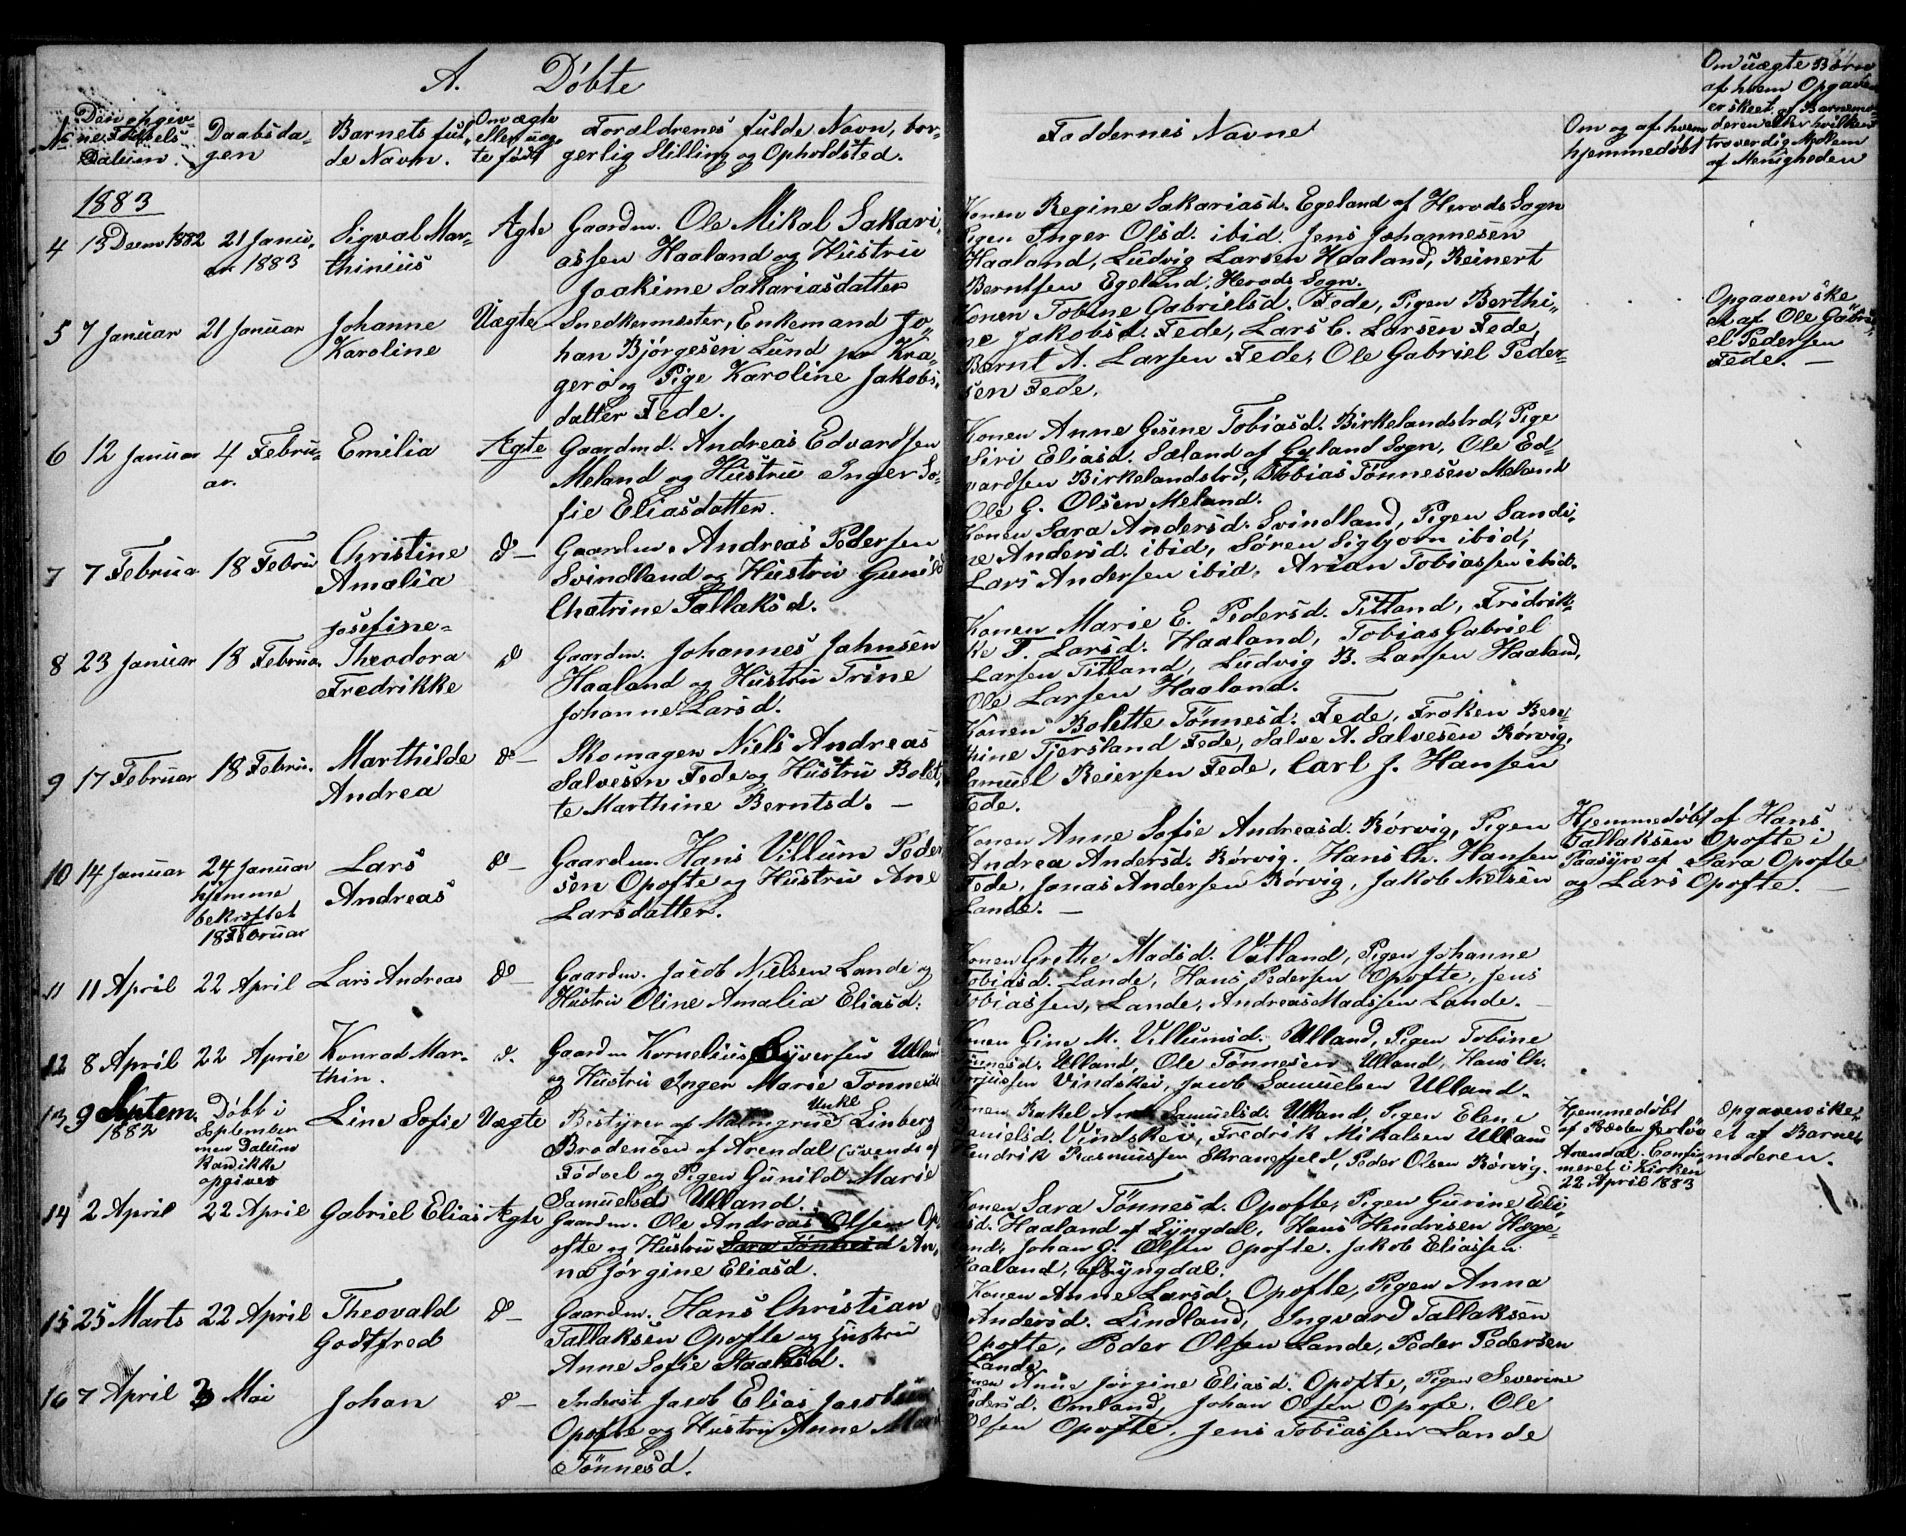 A. Døbte
No
Den opgiv-
ne Fødsels
Datum.
Daabsda-
gen
Barnets ful-
de Navn.
Om ægte
eller uæg-
te født
Forældrenes fulde Navn, bor-
gerlig Stilling og Opholdsted.
Faddernes Navne
Om og af hvem
hjemmedøbt
Om uægte Børn
af hvem Opgaven
er skeet, af Barnemo-
deren eller hvilken
troværdig Mand
af Menigheden
1883
4
13 Decem 1882
21 Janu-
ar 1883
Sigval Mar-
thinius
Ægte
Gaardm. Ole Mikal Sakari-
assen Haaland og Hustru
Joakime Sakariasdatter
Konen Regine Sakariasd. Egeland af Herods Sogn
Pigen Inger Olsd. ibid. Jens Johannesen
Haaland, Ludvig Larsen Haaland, Reinert
Berntsen Egeland, Herods Sogn.
5
7 Januar
21 Januar
Johanne
Karoline
Uægte
Snedkermester, Enkemand Jo-
han Bjørgesen Lund pr Kra-
gerø og Pige Karoline Jakobs-
datter Fede.
Konen Tobine Gabrielsd. Fede, Pigen Berthi-
ne Jakobsd. Fede, Lars C. Larsen Fede,
Bernt A. Larsen Fede, Ole Gabriel Peder-
sen Fede.
Opgaven ske-
et af Ole Gabri-
el Pedersen
Fede. —
6
12 Januar
4 Febru-
ar.
Emilia
Ægte
Gaardmd. Andreas Edvardsen
Meland og Hustru Inger So-
fie Eliasdatter.
Konen Anne Gesine Tobiasd. Birkelandstrd, Pige
Siri Eliasd. Sæland af Gyland Sogn, Ole Ed-
vardsen Birkelandstrd, Tobias Tønnesen Meland
Ole G. Olsen Meland.
7
7 Februa
18 Febru
Christine
Amalia
D —
Gaardm. Andreas Pedersen
Svindland og Hustru Gunild
Chatrine Tallaksd.
Konen Sara Andersd. Svindland, Pigen Sandi-
ne Andersd. ibid, Søren Sigbjørn ibid,
Lars Andersen ibid. Arian Tobiassen ibid.
8
23 Januar
18 Februa
Josefine
Theodora
Fredrikke
D
Gaardm. Johannes Jahnsen
Haaland og Hustru Trine
Johanne Larsd.
Konen Marie E. Pedersd. Titland, Fridrik-
ke T. Larsd. Haaland, Tobias Gabriel
Larsen Titland, Ludvig B. Larsen Haaland,
Ole Larsen Haaland.
9
17 Februar
18 Febru.
Marthilde
Andrea
D —
Skomager Niels Andreas
Salvesen Fede og Hustru Bolet-
te Marthine Berntsd. —
Konen Bolette Tønnesd. Fede, Frøken Ben-
thine Tjersland Fede, Salve A. Salvesen Rørvig,
Samuel Reiersen Fede, Carl J. Hansen
Fede.
10
14 Januar
24 Januar
hjemme
bekræftet
18 Februar
Lars
Andreas
D —
Gaardm. Hans Villum Peder-
sen Opofte og Hustru Ane
Larsdatter.
Konen Anne Sofie Andreasd. Rørvig, Pigen
Andrea Andersd. Rørvig. Hans Ch. Hansen
Fede, Jonas Andersen Rørvig, Jakob Nielsen
Lande. —
Hjemmedøbt af Hans
Tallaksen Opofte i
Paasyn af Sara Opofte
og Lars Opofte. —
11
11 April
22 April
Lars Andreas
D —
Gaardm. Jacob Nielsen Lande og
Hustru Oline Amalia Eliasd.
Konen Grethe Madsd. Vatland, Pigen Johanne
Tobiasd. Lande, Hans Pedersen Opofte, Jens
Tobiassen, Lande, Andreas Madssen Lande. —
12
8 April
22 April
Konrad Mar-
thin.
D.
Gaardm Kornelius Syversen Ulland
og Hustru Inger Marie Tønnesd
Konen Gine M. Villumsd. Ulland, Pigen Tobine
Tønnesd. Ulland, Ole Tønnesen Ulland, Hans Ch.
Terjussen Vindskei, Jacob Samuelsen Ulland.
13
9 Septem.
1882
Døbt i
September
men Datum
kan ikke
opgives
Line Sofie
Uægte
Bestyrer af Linberg
Brodensen af Arendal (svensk af
Fødsel og Pigen Gunild Marie
Samuelsd Ulland.
Konen Rakel Samuelsd. Ulland, Pigen Elene
Danielsd. Vindskei, Fredrik Mikalsen Ulland
Hendrik Rasmussen Skranefjeld, Peder Olsen Rørvig.
Hjemmedøbt
af Præsten
Arendal. Confir-
meret i Kirken
22 April 1883
Opgaven ske-
et af Barne-
moderen.
14
2 April
22 April
Gabriel Elias
Ægte
Gaardm. Ole Andreas Olsen Op-
ofte og Hustru Sara Tønnesd An-
na Jørgine Eliasd.
Konen Sara Tønnesd. Opofte, Pigen Gurine Eli-
asd. Haaland af Lyngdal, Hans Hendrisen Hæge-
land, Johan G. Olsen Opofte. Jakob Eliassen
Haaland, af Lyngdal.
15
25 Marts
22 April
Theovald
Godtfred
D —
Gaardm. Hans Christian
Tallaksen Opofte og Hustru
Anne Sofie
Konen Anne Larsd. Opofte, Pigen Anna
Andersd. Lindland, Ingvard Tallaksen
Opofte, Peder Olsen Lande, Peder Pedersen
Lande
16
7 April
3 Mai
Johan
D —
Inderst Jacob Elias Jacobsen
Opofte og Hustru Anne
Tønnesd.
Konen Anne Jørgine Eliasd. Opofte, Pigen Severine
Pedersd. Omland, Johan Olsen Opofte. Ole
Olsen Opofte, Jens Tobiassen Lande